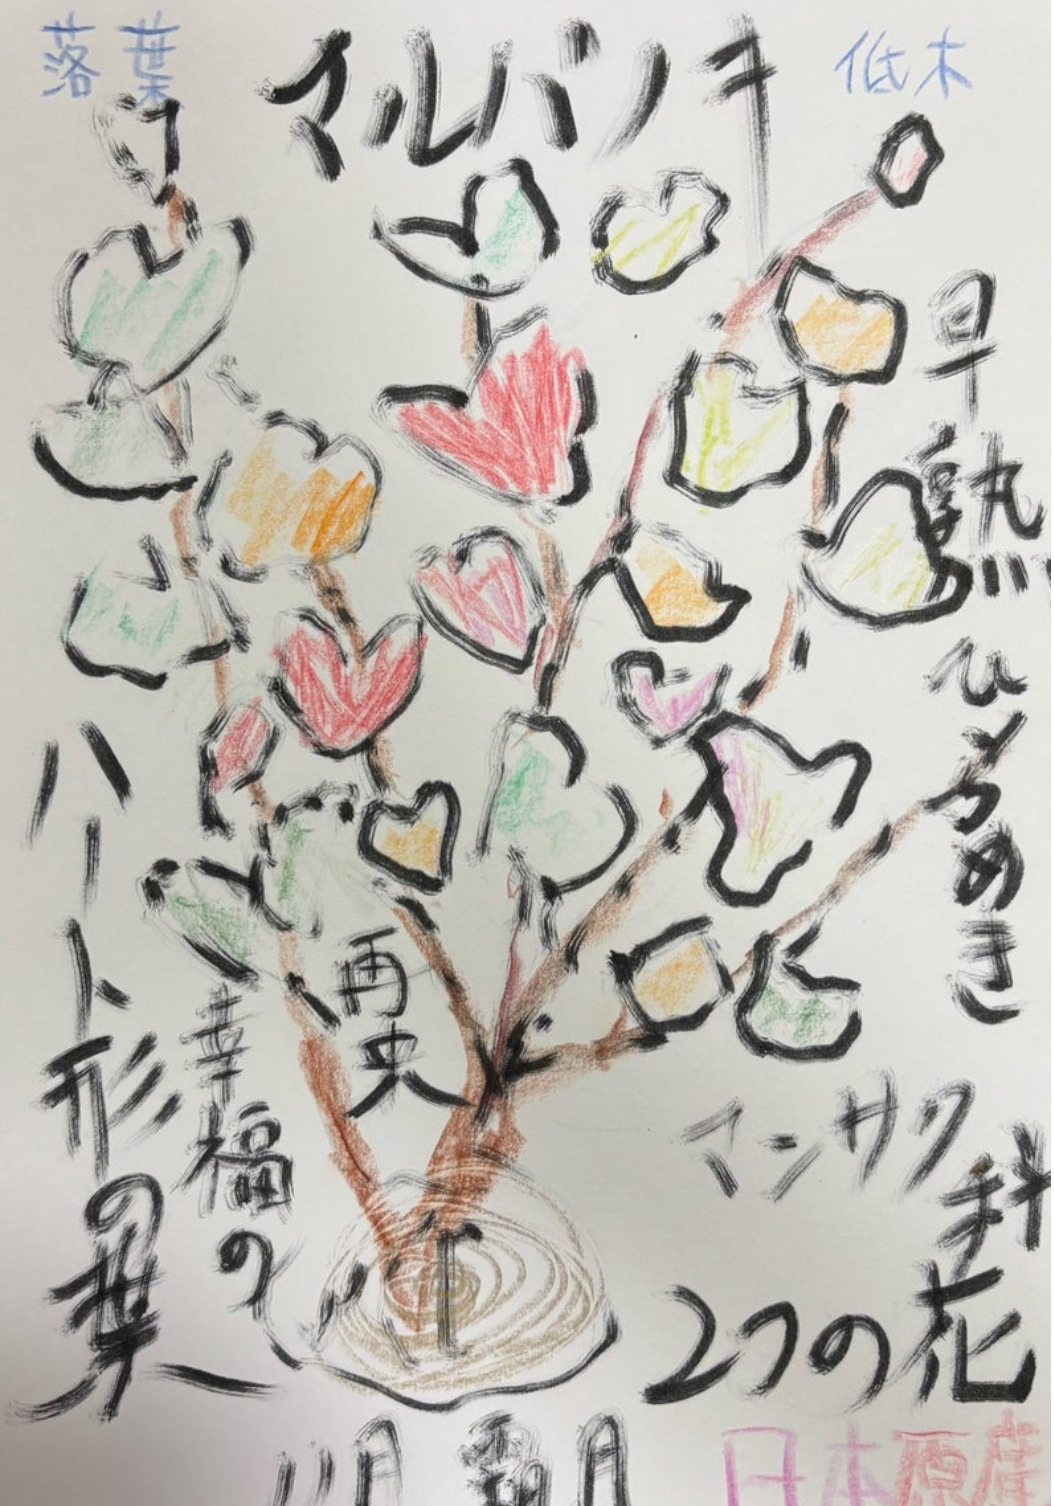 落葉
マルバノキ
低木
早熟
ひらめき
ハート形の葉
幸福の
再史
マンサク科
2つの花
日本原産